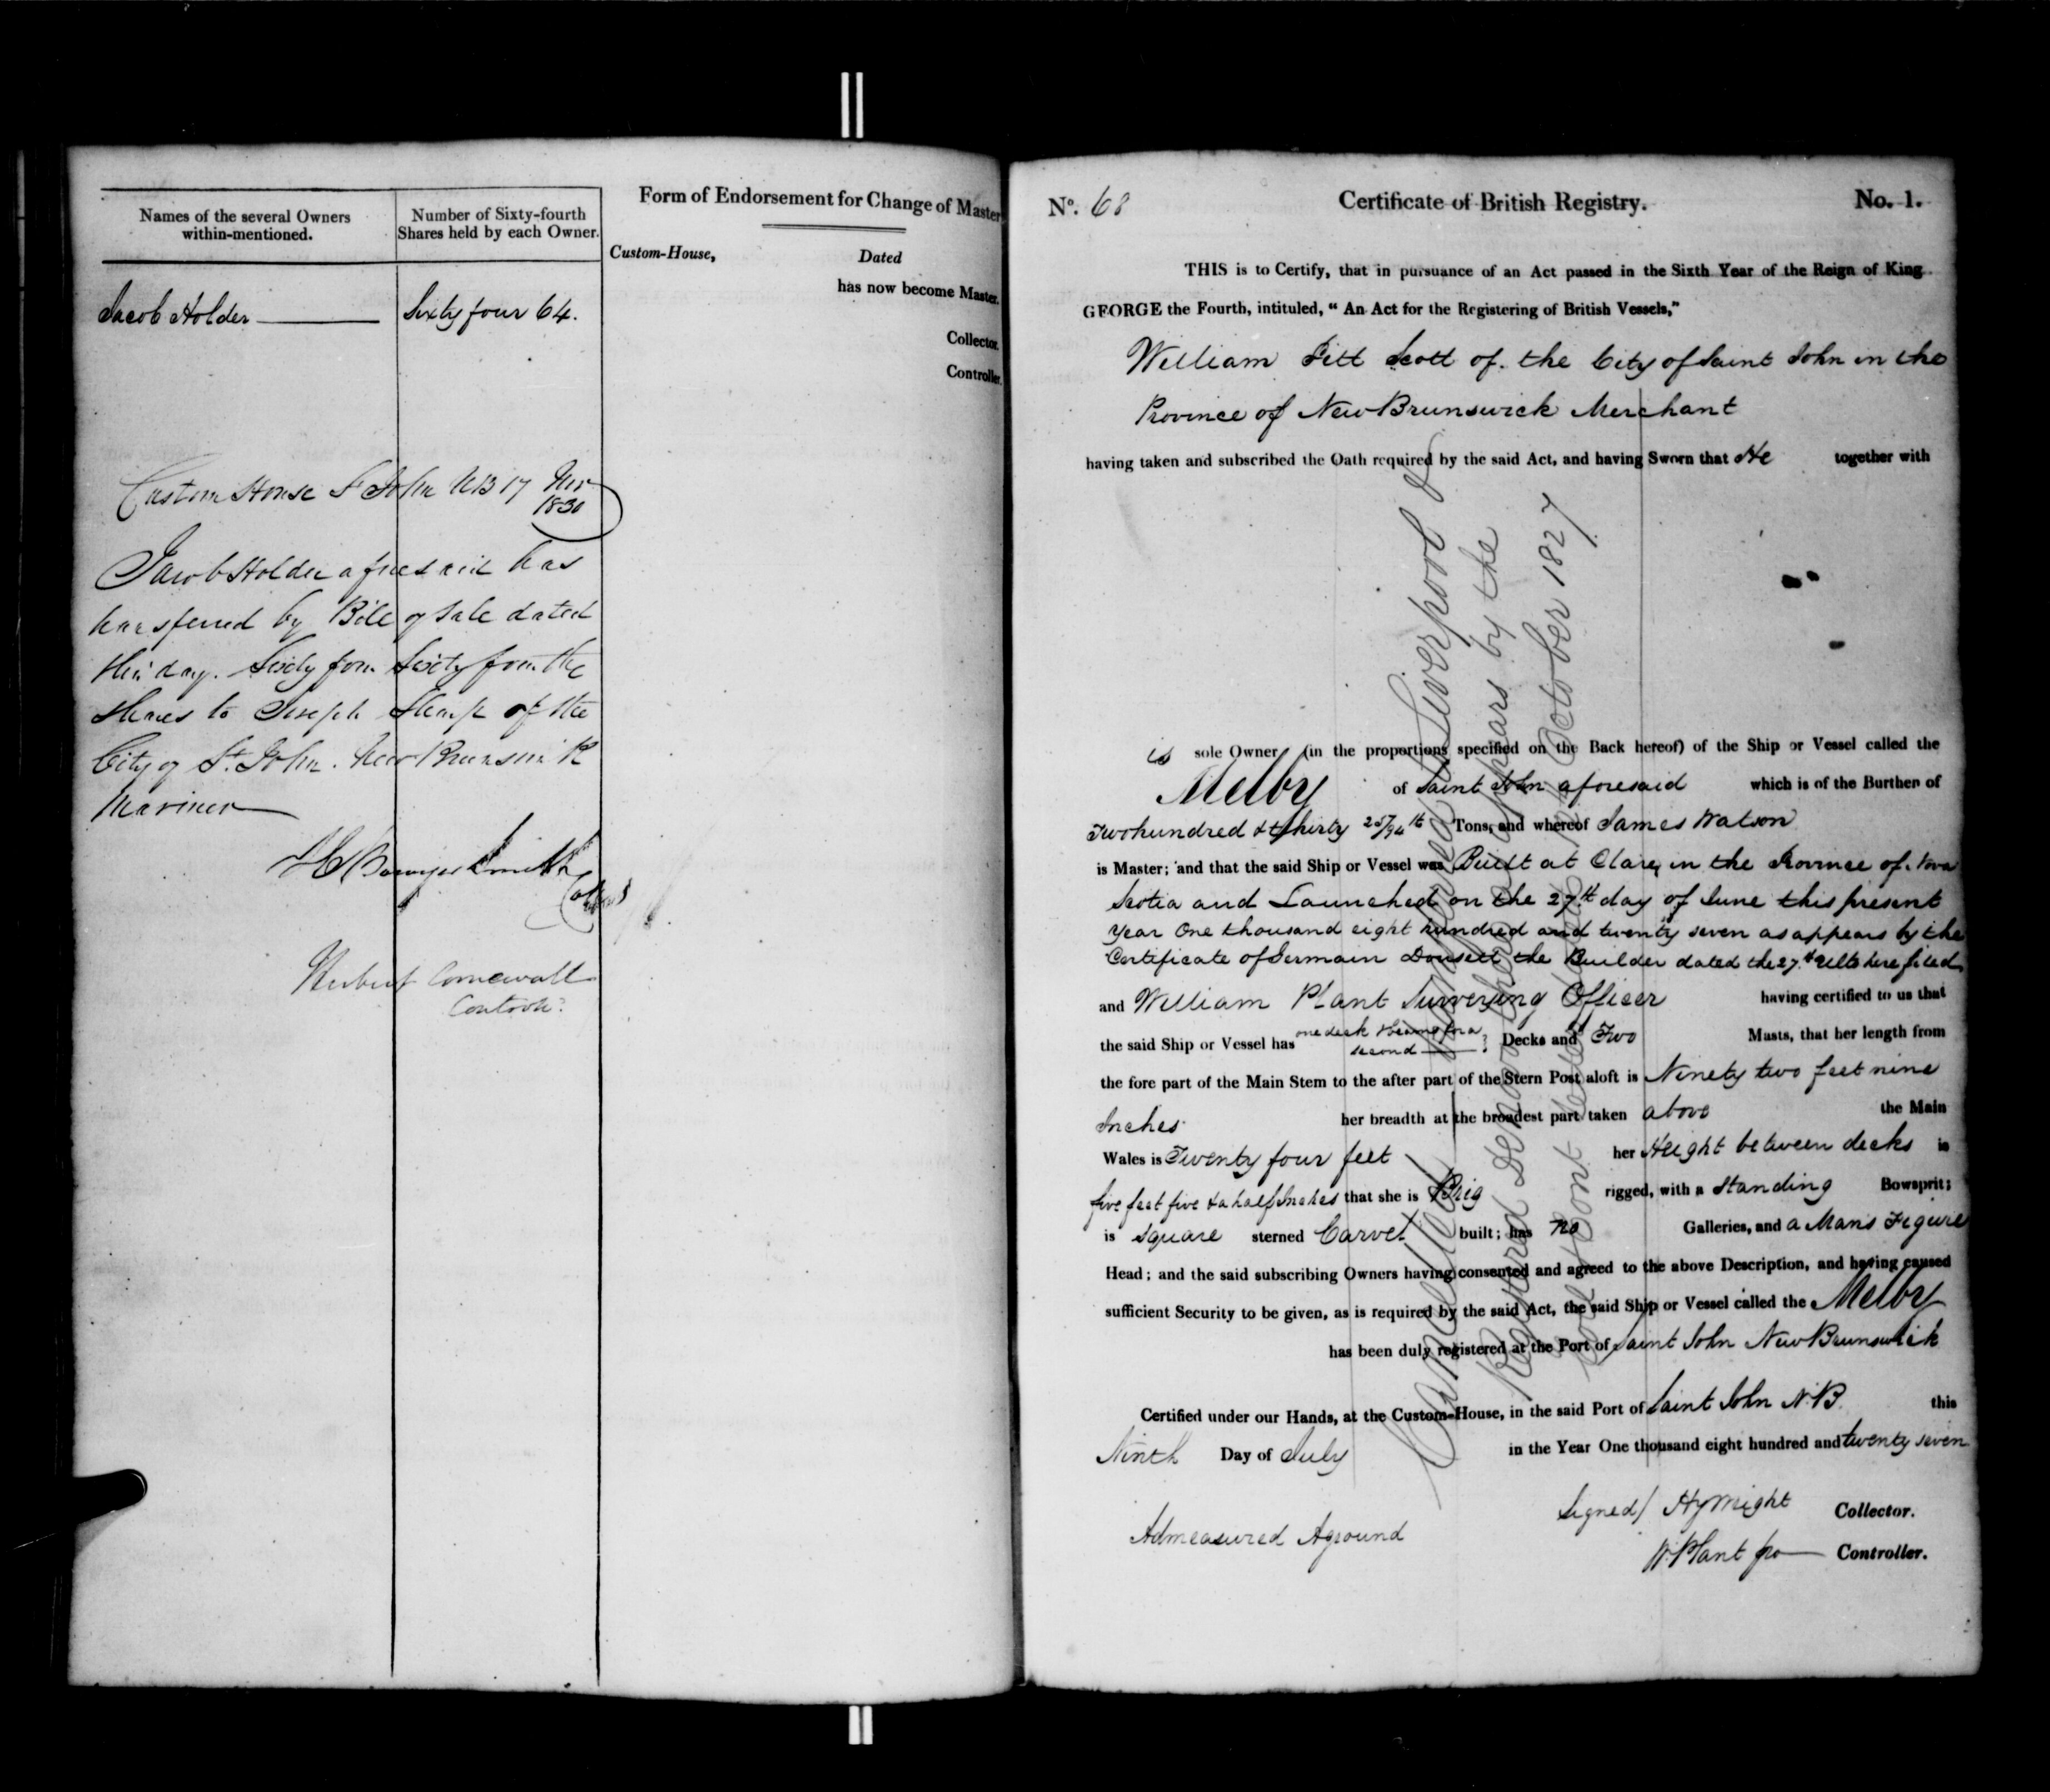 Names of the several Owners within-mentioned.
Number of Sixty-fourth Shares held by each Owner.
Jacob Holder
Sixty four 64.
Custom House St John NB 17 Nov
1830
Jacob Holder aforesaid has
transferred by Bill of Sale dated
this day. Sixty four Sixty fourth
Shares to Joseph Sharp of the
City of St. John. New Brunswick
Mariner
Smith
Herbert Cornewall
Form of Endorsement for Change of Master
Custom-House, Dated
has now become Master.
Collector.
Controller.
No. 68 Certificate of British Registry. No. 1.
THIS is to Certify, that in pursuance of an Act passed in the Sixth Year of the Reign of King
GEORGE the Fourth, intituled, “ An Act for the Registering of British Vessels,”
William Pitt Scott of the City of Saint John in the
Province of New Brunswick Merchant
having taken and subscribed the Oath required by the said Act, and having Sworn that He together with
is sole Owner (in the proportions specified on the Back hereof) of the Ship or Vessel called the
Melby of Saint John aforesaid which is of the Burthen of
Two hundred & thirty 25/94th Tons, and whereof James Watson
is Master; and that the said Ship or Vessel was Built at Clare, in the Province of Nova
Scotia and Launched on the 27th day of June this present
year One thousand eight hundred and twenty seven as appears by the
Certificate of Germain the Builder dated the 27th Ulto here filed
and William Plant Surveying Officer having certified to us that
the said Ship or Vessel has one deck & beams for a
second Decks and Two Masts, that her length from
the fore part of the Main Stem to the after part of the Stern Post aloft is Ninety two feet nine
Inches her breadth at the broadest part taken above the Main
Wales is Twenty four feet her Height between decks is
five feet five & a half Inches that she is Brig rigged, with a standing Bowsprit;
is Square sterned Carvel built; has no Galleries, and a Mans Figure
Head; and the said subscribing Owners having consented and agreed to the above Description, and having caused
sufficient Security to be given, as is required by the said Act, the said Ship or Vessel called the Melby
has been duly registered at the Port of Saint John New Brunswick
Certified under our Hands, at the Custom-House, in the said Port of Saint John N.B. this
Ninth Day of July in the Year One thousand eight hundred and twenty seven
Signed/ Hy Wright Collector.
Admeasured Aground
W. Plant pro Controller.
Cancelled Liverpool &
Registered De novo there as appears by the
October 1827